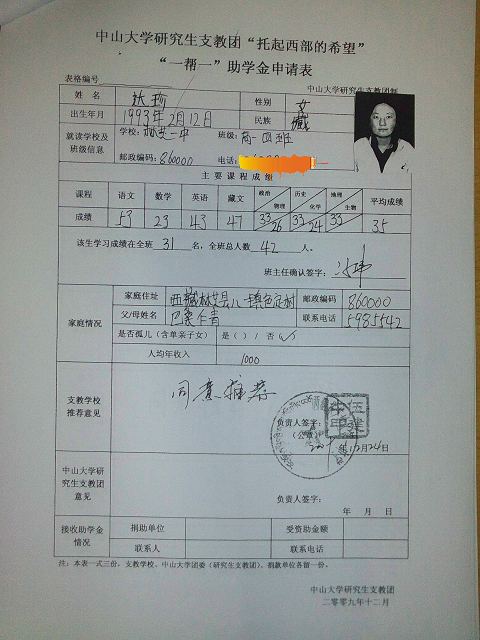 中山大学研究生支教团“托起西部的希望”
“一帮一”助学金申请表
表格编号 中山大学研究生支教团制
姓名 达珍 性别 女
出生年月 1993年2月12日 民族 藏
就读学校及班级信息 学校:林芝一中 班级:高一四班
邮政编码:860000 电话:
主要课程成绩
课程 语文 数学 英语 藏文 政治 物理 历史 化学 地理 生物 平均成绩
成绩 53 23 43 47 33 26 33 24 33 35
该生学习成绩在全班 31 名,全班总人数 42 人。
班主任确认签字:
家庭情况 家庭住址 西藏林芝县八一镇色定村 邮政编码 860000
父/母姓名 巴桑仁青 联系电话 5985542
是否孤儿(含单亲子女) 是( )/否(√)
人均年收入 1000
支教学校推荐意见 同意推荐
负责人签字:
(公章)
年12月24日
中山大学研究生支教团意见
负责人签字:
年 月 日
接收助学金情况 捐助单位 受资助金额
联系人 联系电话
注:本表一式三份,支教学校、中山大学团委(研究生支教团)、捐款单位各留一份。
中山大学研究生支教团
二零零九年十二月